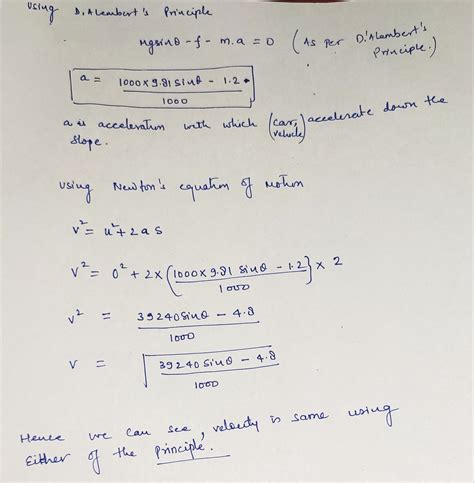 Using D.Alembert's Principle
mgsinθ - f - m.a = 0 (As per D.'Alembert's Principle.)
a = 1000×9.81 sinθ - 1.2 / 1000
a is acceleration with which (car, vehicle) accelerate down the
slope.
Using Newton's equation of motion
v² = u² + 2as
v² = 0² + 2×(1000×9.81 sinθ - 1.2 / 1000) × 2
v² = 39240 sinθ - 4.8 / 1000
v = √(39240 sinθ - 4.8 / 1000)
Hence we can see, velocity is same using
Either of the Principle.